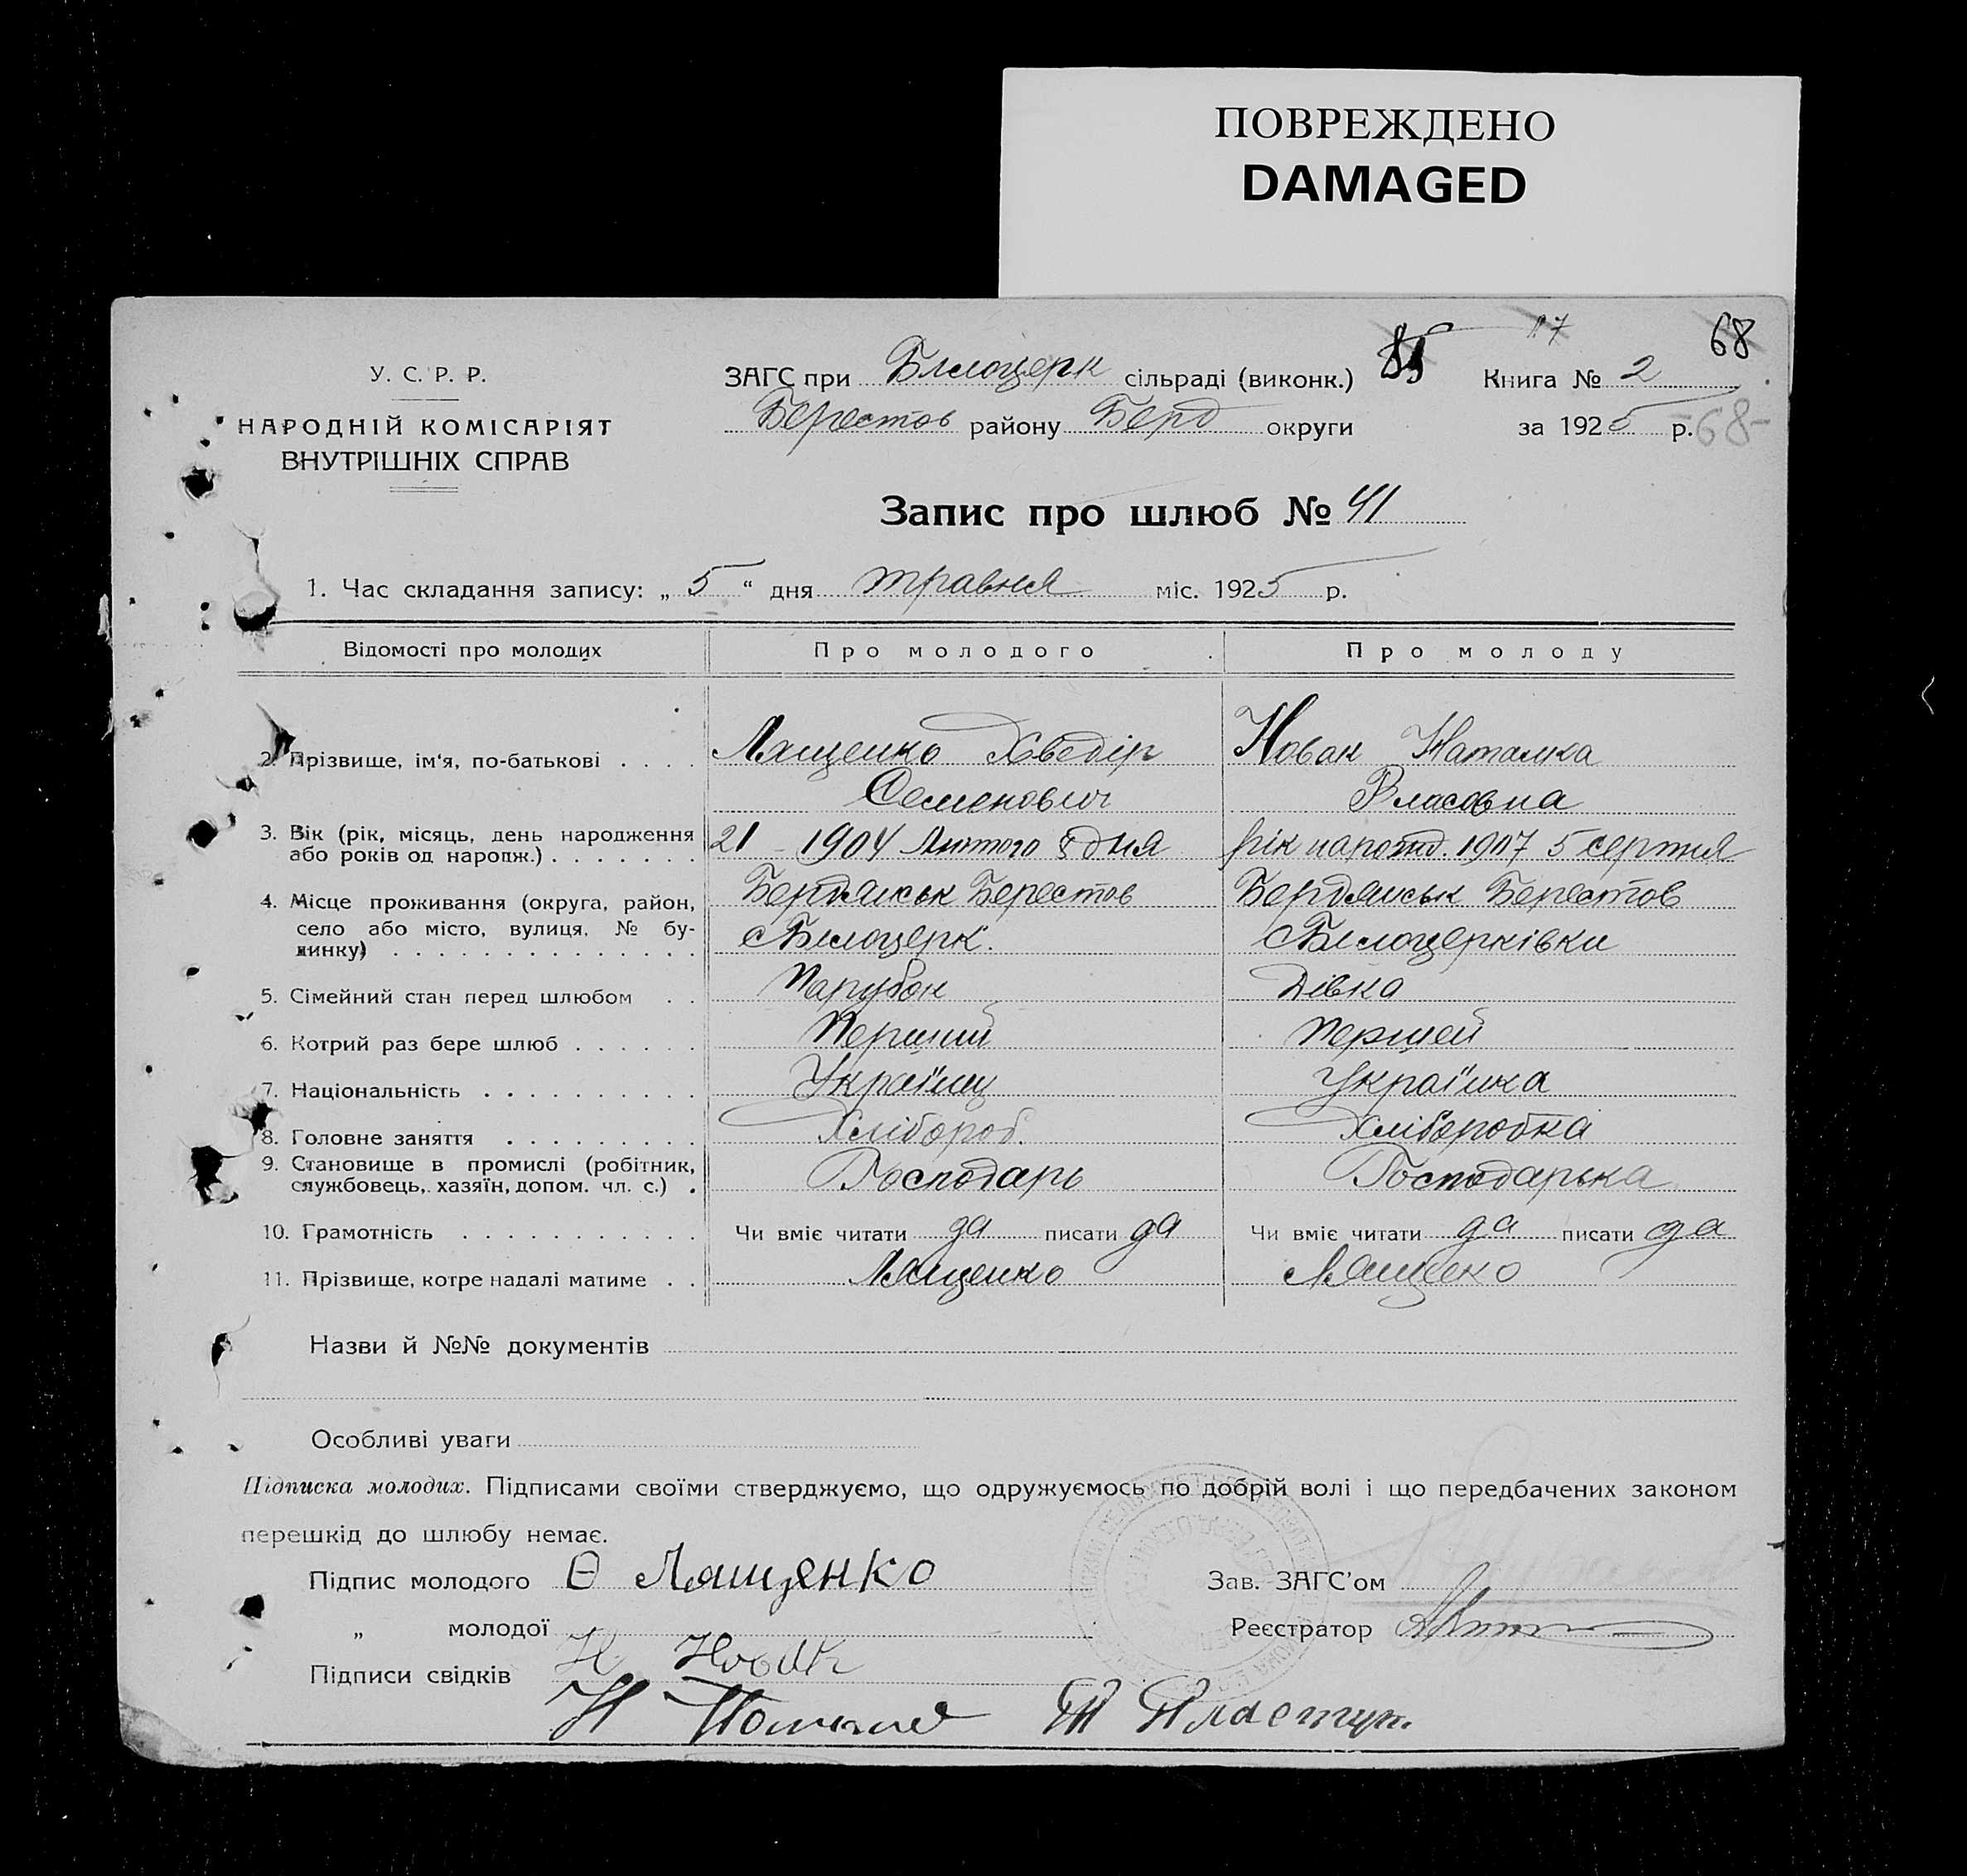 ПОВРЕЖДЕНО
DAMAGED
68
У. С. Р. Р.
НАРОДНІЙ КОМІСАРІЯТ
ВНУТРІШНІХ СПРАВ
ЗАГС при Білоцерк сільраді (виконк.) Книга № 2
Берестов району Берд округи за 1925 р. 68
Запис про шлюб № 41
1. Час складання запису: „ 5 “ дня травня міс. 1925 р.
Відомості про молодих Про молодого Про молоду
2. Прізвище, ім‘я, по-батькові . . . . Лященко Хведір Новак Наталка
Семенович Власовна
3. Вік (рік, місяць, день народження або років од народж.) . . . . . . . 21 – 1904 Лютого 8 дня рік народ. 1907 5 серпня
4. Місце проживання (округа, район, Бердянськ Берестов Бердянськ Берестов
село або місто, вулиця, № бу- Білоцерк. Білоцерківки
динку) . . . . . . . . . . . . . .
5. Сімейний стан перед шлюбом . . Парубок Дівка
6. Котрий раз бере шлюб . . . . . . Перший Першей
7. Національність . . . . . . . . . . Україnец Українка
8. Головне заняття . . . . . . . . . Хлібороб. Хліборобка
9. Становище в промислі (робітник,
службовець, хазяїн, допом. чл. с.) . Господарь Господарька
10. Грамотність . . . . . . . . . . . Чи вміє читати да писати да Чи вміє читати да писати да
11. Прізвище, котре надалі матиме . . Лященко Лященко
Назви й №№ документів
Особливі уваги
Підписка молодих. Підписами своїми стверджуємо, що одружуємось по добрій волі і що передбачених законом
перешкід до шлюбу немає.
Підпис молодого Ѳ Лященко Зав. ЗАГС’ом
„ молодої Реєстратор
Н Новак
Підписи свідків
Н Т Пластун.